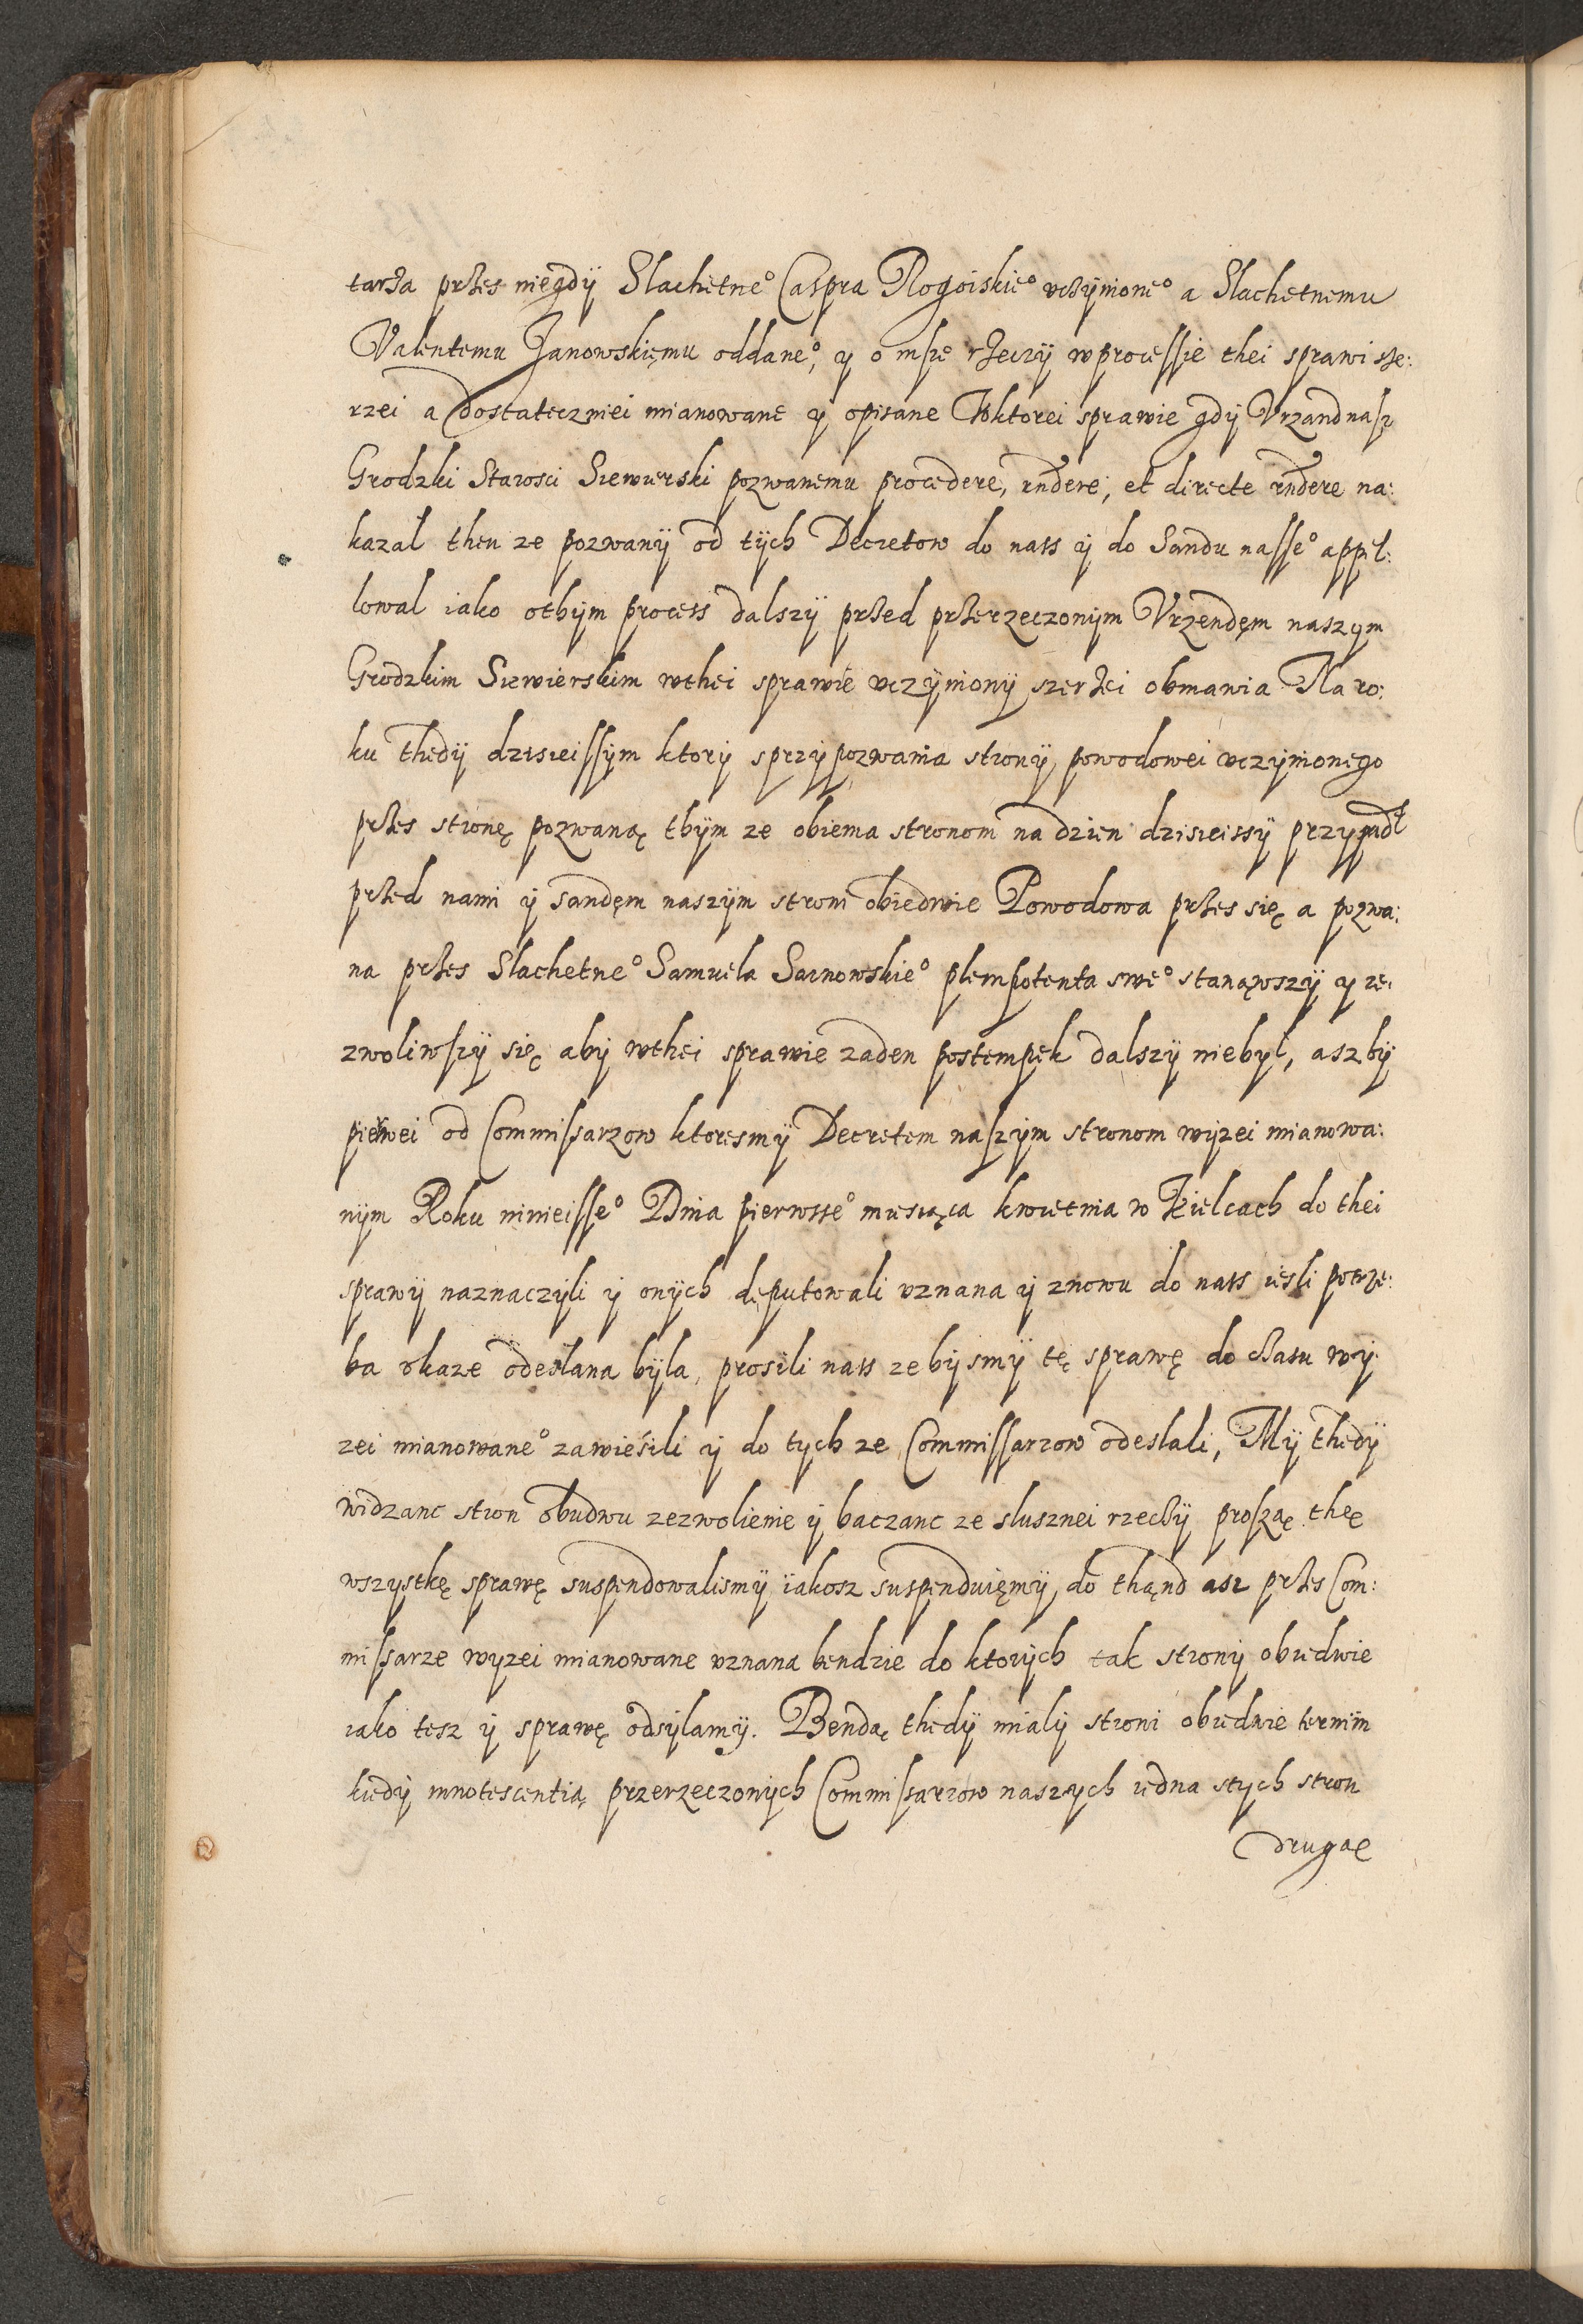 tarza przes niegdÿ Slachetne° Caspra Rogoiskie° vczÿnione° a Slachetnemu
Valentemu Janowskięmu oddane°, y o insze rzeczÿ w processie thei sprawi sze:
rzei a dostateczniei mianowane y opisane W ktorei sprawie gdÿ Vrzand nasz
Grodzki Starosci Siewierski pozwanemu procedere, rn̄dere, et directe rn̄dere na:
kazal then ze pozwanÿ od tÿch Decretow do nass ÿ do Sandu nasse° appel:
lowal iako o thÿm process dalszÿ przed przerzeczonÿm Vrzendęm naszym
Grodzkim Siewierskim w thei sprawie vczÿnionÿ szerzei obmawia Na ro:
ku thedÿ dzisieissÿm ktorÿ s przÿpozwania stronÿ powodowei vczÿnionego
przes stronę pozwaną thÿm ze obiema stronom na dzien dzisieissÿ przypadł
przed nami ÿ sandęm naszÿm stroni obiedwie Powodowa przes się a pozwa:
na przes Slachetne° Samuela Sarnowskie° plenipotenta swe° stanąwszÿ y ze:
zwoliwszÿ się abÿ w thei sprawie zaden postempek dalszÿ nie bÿl, asz bÿ
pierwei od Commissarzow ktoresmÿ Decretem naszÿm stronom wÿzei mianowa:
nÿm Roku ninieisse° Dnia pierwsse° miesiąca kwietnia w Kielcach do thei
sprawÿ naznaczÿli ÿ onÿch deputowali vznana ÿ znowu do nass iesli potrze:
ba okaze odesłana bÿla, prosili nass ze bÿsmÿ tę sprawę do czasu wÿ
zei mianowane° zawiesili ÿ do tych ze Commissarzow odeslali, Mÿ thedÿ
widzanc stron obudwu zezwolienie ÿ baczanc ze slusznei rzeczÿ proszą thę
wszystkę sprawę suspendowalismÿ iakosz suspenduięmÿ do thąnd asz przes Com:
missarze wyzei mianowane vznana bendzie do ktorÿch tak stronÿ obiedwie
iako tesz ÿ sprawę odsÿlamÿ. Bendą thedÿ mialÿ stroni obiedwie termin
kiedÿ innotescentią przerzeczonÿch Commissarzow naszych iedna s tych stron
drugą